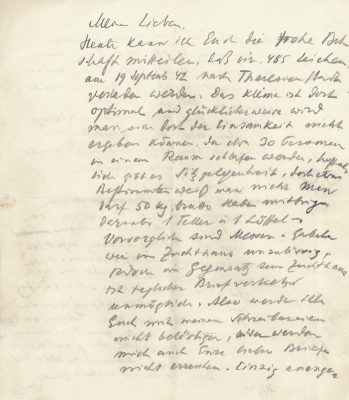 Meine Lieben.
Heute kann ich Euch die frohe Bot-
schaft mitteilen, daß wir 485 Leichen
am 19 Septemb 42 nach Theresienstadt
verladen werden. Das Klima ist dort
optimal und glücklicherweise wird
man sich dort der Einsamkeit nicht
ergeben können, da etwa 30 Personen
in einem Raum schlafen werden,
sich gutes Sitzgelegenheit, doch etwas
Bestimmtes weiß man nicht. Man
darf 50 kg brutto Habe mitbringen
darunter 1 Teller u 1 Löffel –
Vorsorglich sind Messer u Gabeln
wie im Zuchthaus unzulässig,
jedoch im Gegensatz zum Zuchthaus
ist jeglicher Briefverkehr
unmöglich. Also werde ich
Euch mit meinen Schreibereien
nicht belästigen, werden
mich auch Eure lieben Briefe
nicht erreichen. Einzig